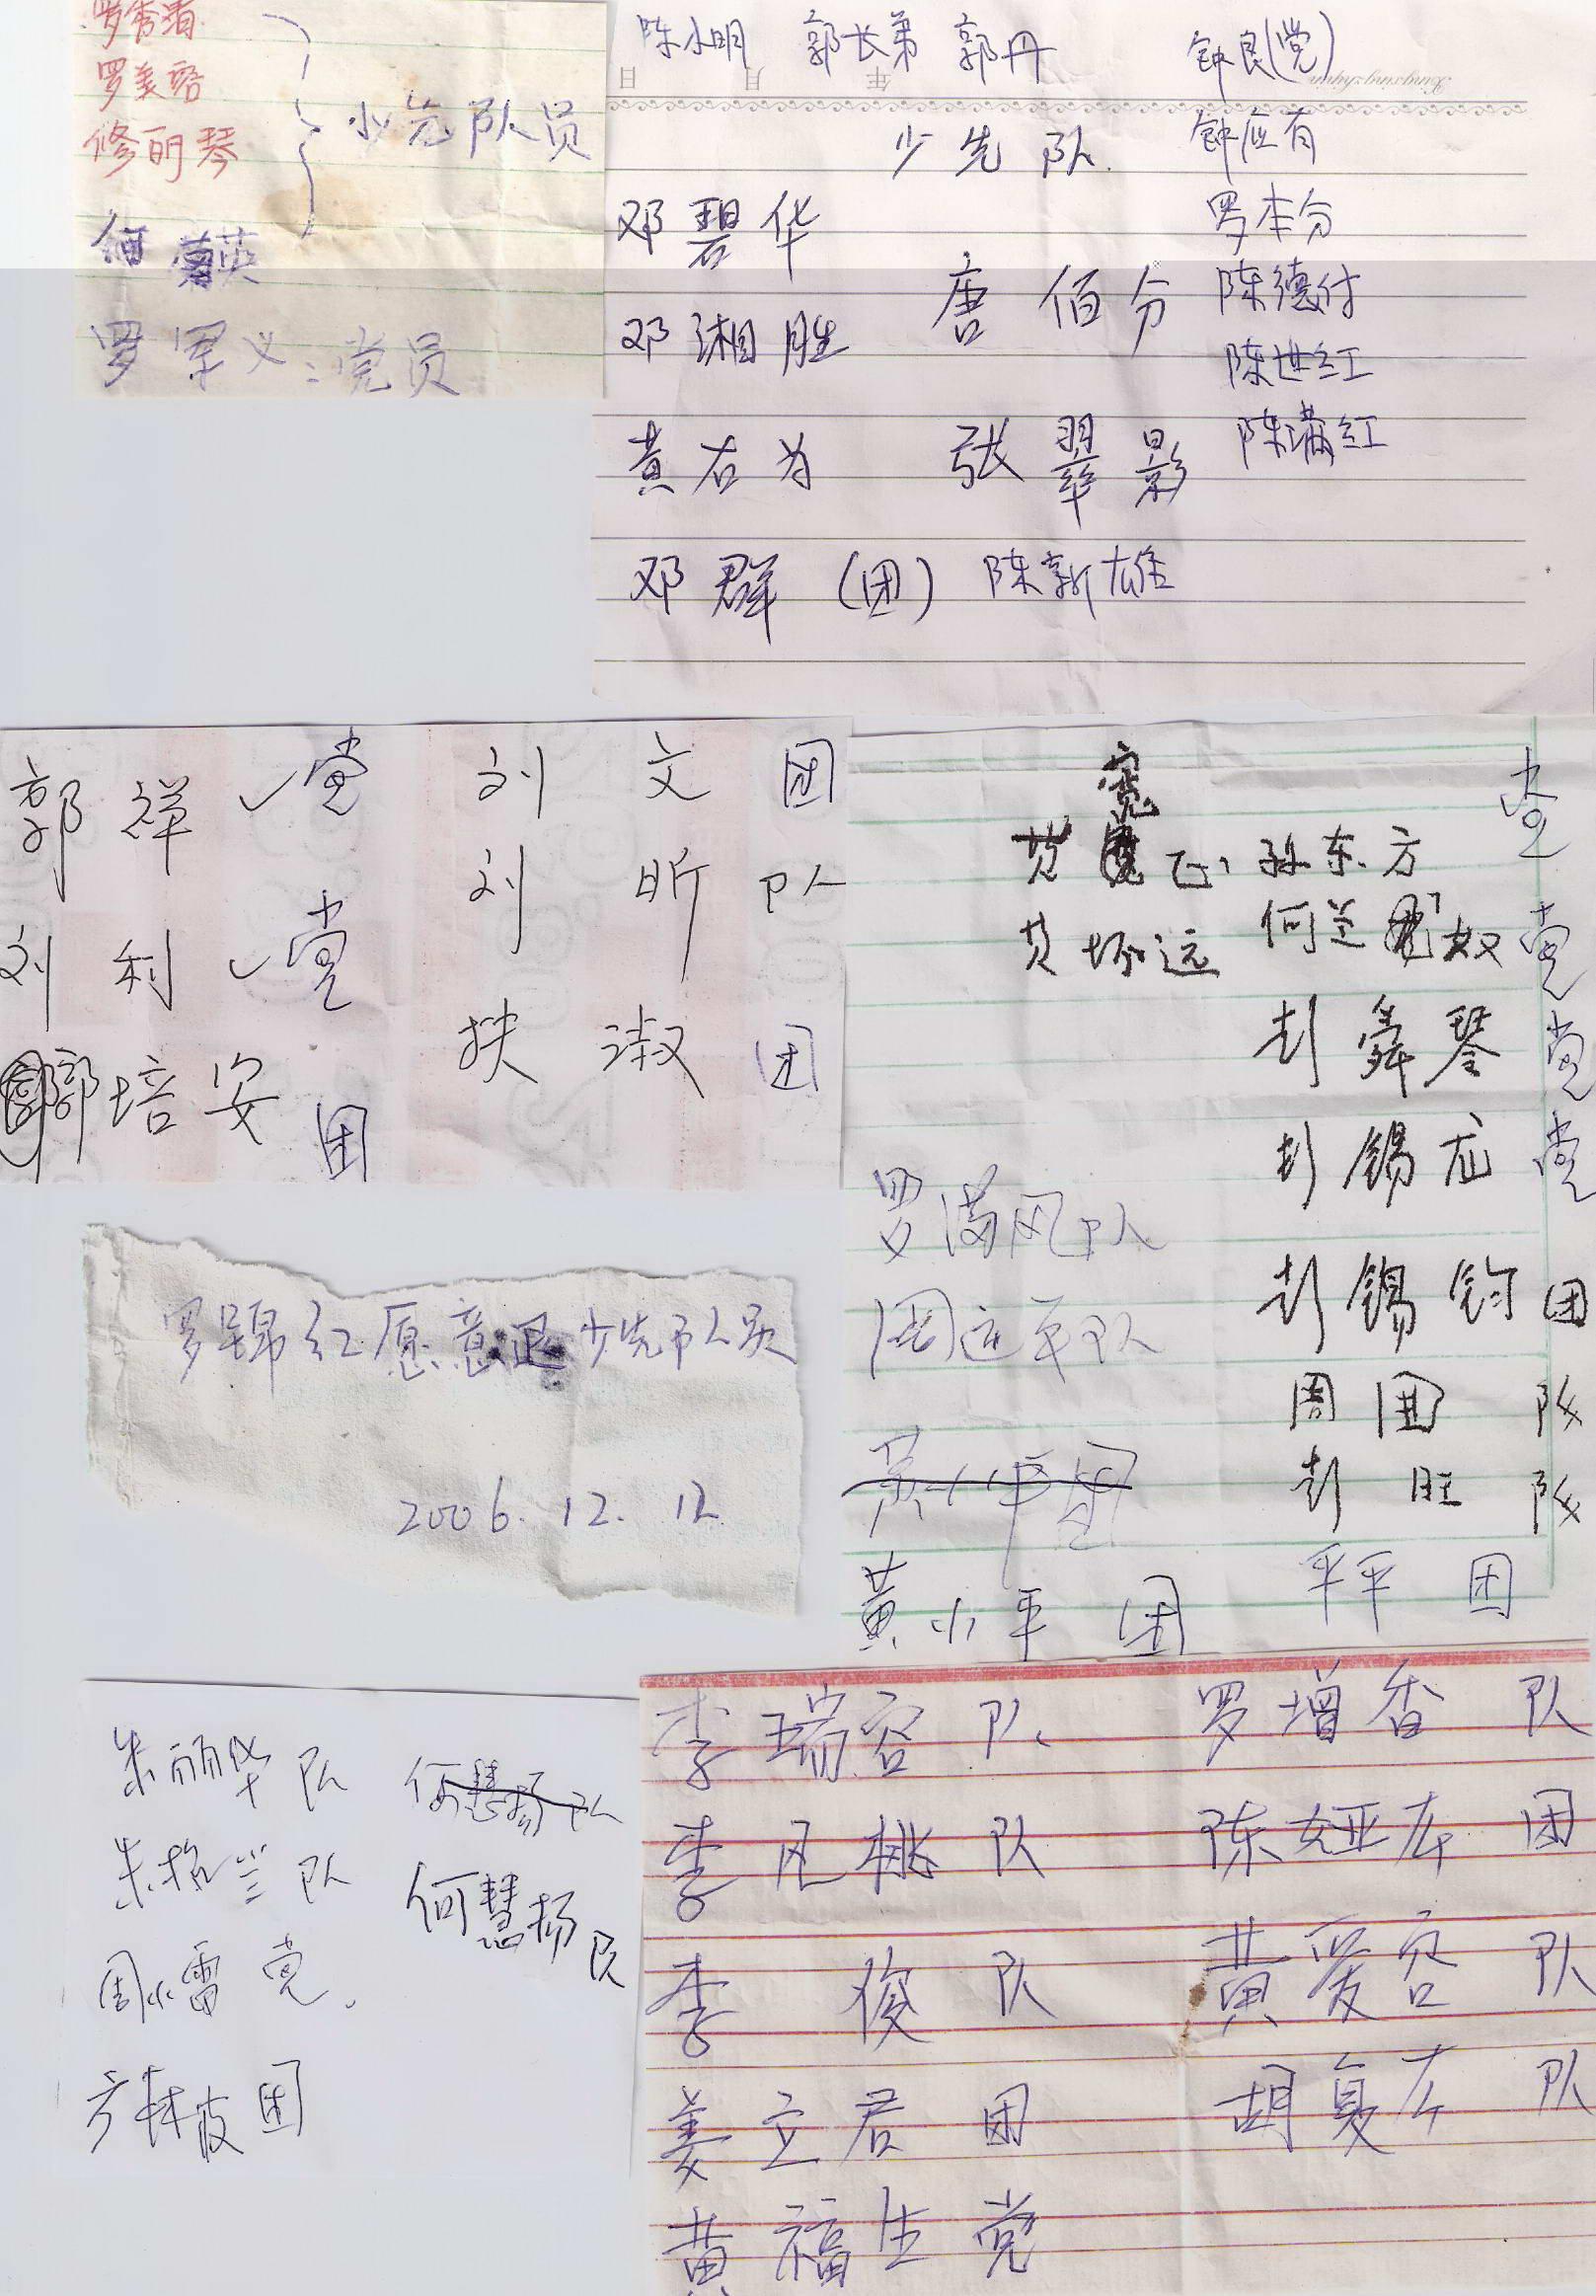 罗秀清
罗美容
修丽琴
少先队员
何 英
罗军义:党员
陈小明 郭长弟 郭丹 钟良(党)
日 月 年 Xingxingzhiyuan
少先队 钟应有
邓碧华 罗本分
唐佰分 陈德付
邓湘胜 陈世红
黄右为 张翠影 陈满红
邓群(团) 陈新雄
郭祥 党 刘文 团
刘昕 队
刘利 党
扶淑 团
郭培安 团
宽
党
孙东方
何兰 奴 党
彭舜琴 党
彭锡龙 党
彭锡钧 团
周围 队
彭旺 队
平平 团
罗满风 队
周远平 队
黄小平 团
黄小平 团
罗锦红愿意退少先队员
2006.12.12
朱丽华 队 何慧扬 队
朱格兰 队
何慧扬 队
周小雷 党
团
李瑞容 队 罗增香 队
李凡桃 队 陈娅本 团
李俊 队 黄爱容 队
姜立君 团 胡复本 队
黄福生 党